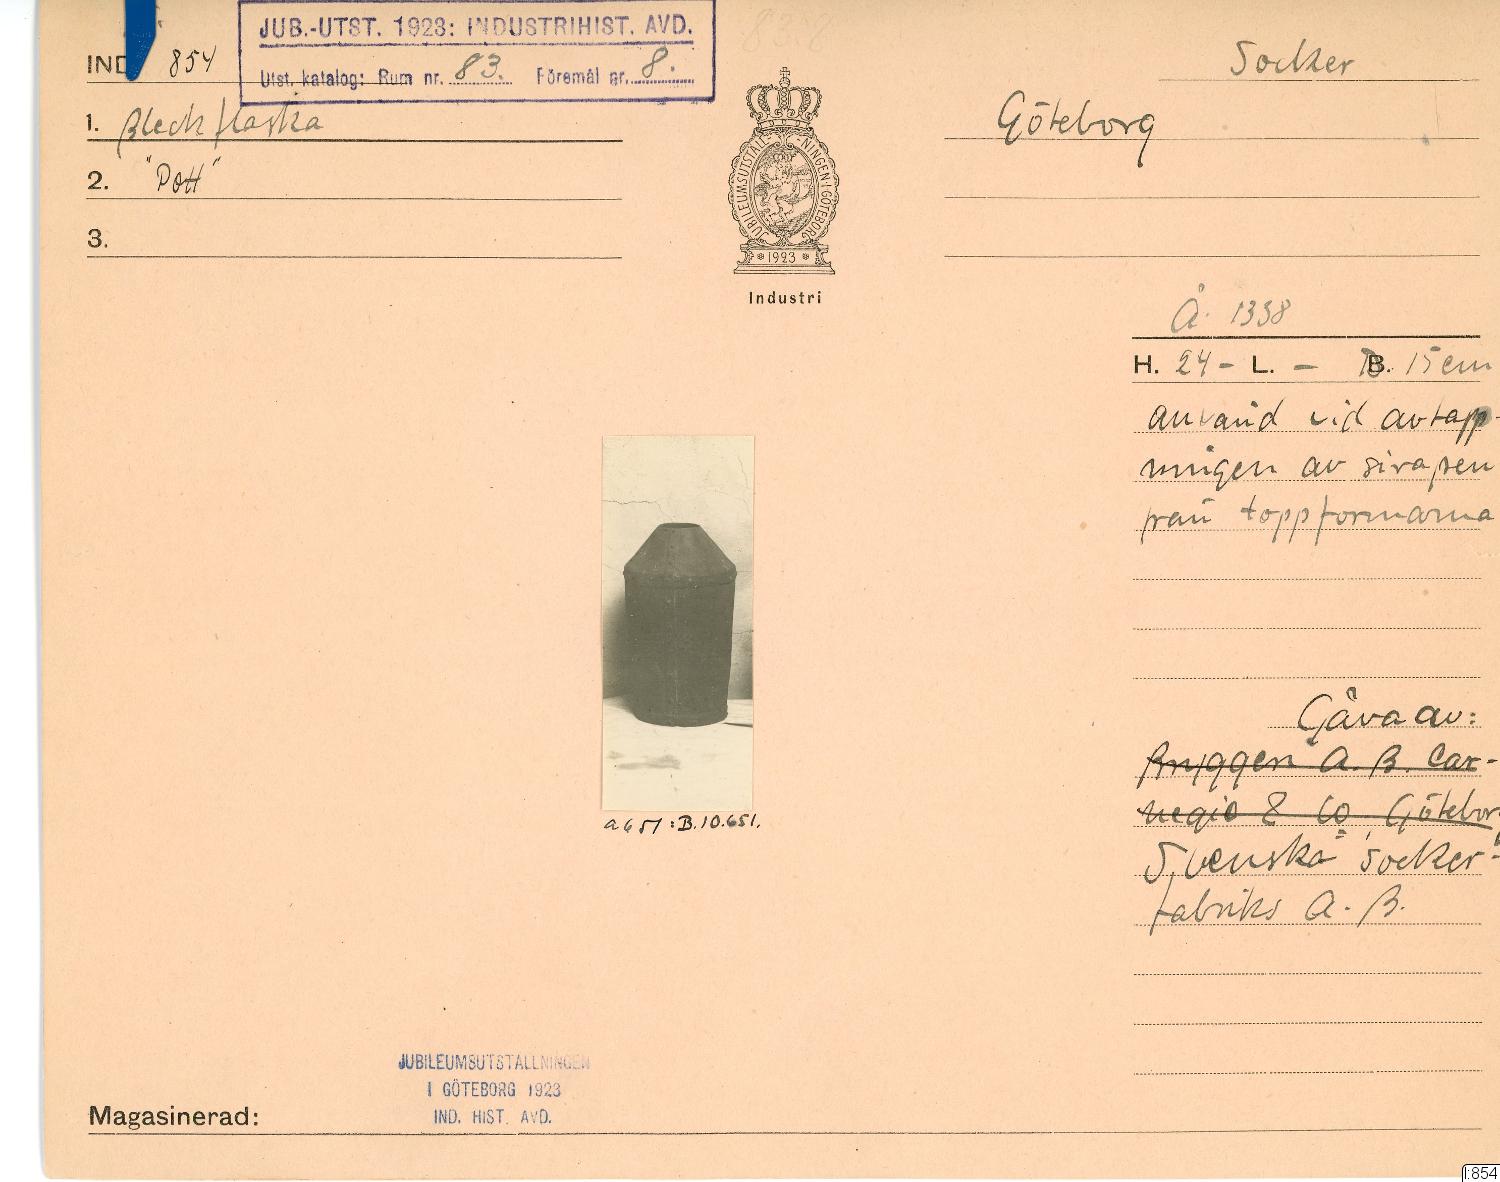 JUB.-UTST. 1923: INDUSTRIHIST. AVD.
Utst. katalog: Rum nr. 83. Föremål nr. 8.
IND 854
1. Bleckflaska
2. "Pott"
3.
JUBILEUMSUTSTÄLLNINGEN I GÖTEBORG
* 1923 *
Industri
Socker
Göteborg
Å. 1338
H. 24 - L. - B. 15 cm
använd vid avtapp-
ningen av sirapen
från toppformarna
Gåva av:
Bryggeri A. B. Car-
negie & Co, Göteborg
Svenska Socker-
fabriks A. B.
a651:B.10.651.
JUBILEUMSUTSTÄLLNINGEN
I GÖTEBORG 1923
IND. HIST. AVD.
Magasinerad:
I:854